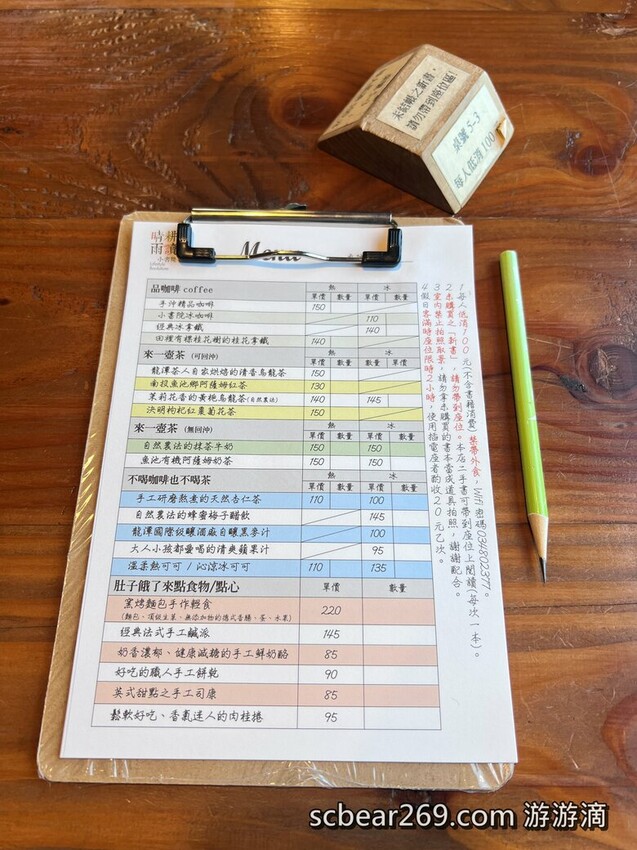 未結帳之新書，
請勿帶到座位區！
桌號 5-3
每人低消100
晴耕
雨讀
小書院
Menu
品咖啡 coffee 熱 冰
單價 數量 單價 數量
手沖精品咖啡 150
小書院冰咖啡 110
經典冰拿鐵 140
田裡有棵桂花樹的桂花拿鐵 140
來一壺茶 (可回沖) 熱 冰
單價 數量 單價 數量
龍潭茶人自家烘焙的清香烏龍茶 150
南投魚池鄉阿薩姆紅茶 130
茉莉花香的黃桃烏龍茶(自然農法) 140 145
決明枸杞紅棗菊花茶 150
來一壺茶 (無回沖) 熱 冰
單價 數量 單價 數量
自然農法的抹茶牛奶 150 150
魚池有機阿薩姆奶茶 150 150
不喝咖啡也不喝茶 熱 冰
單價 數量 單價 數量
手工研磨熬煮的天然杏仁茶 110 100
自然農法的蜂蜜梅子醋飲 145
龍潭國際級釀酒廠自釀黑麥汁 100
大人小孩都愛喝的清爽蘋果汁 95
溫柔熱可可 / 沁涼冰可可 110 135
肚子餓了來點食物/點心 單價 數量
窯烤麵包手作輕食 220
(麵包、頂級生菜、無添加物的德式香腸、茶、水果)
經典法式手工鹹派 145
奶香濃郁、健康減糖的手工鮮奶酪 85
好吃的職人手工餅乾 90
英式甜點之手工司康 85
鬆軟好吃、香氣迷人的肉桂捲 95
1 每人低消100元(不含書籍消費)禁帶外食，Wifi密碼034802377。
2 未購買之「新書」，請勿帶到座位。本店二手書可帶到座位上閱讀(每次一本)。
3 室內禁止拍照取景，請勿拿未購買的書本當成道具拍照，謝謝配合。
4 假日客滿時座位限時2小時，使用插電座者酌收20元乙次。
scbear269.com 游游滴